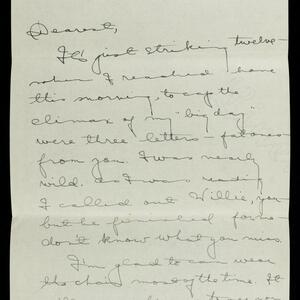 Dearest,
It's just striking twelve -
when I reached home
this morning, to cap the
climax of my "big day"
were three letters -
from you. I was nearly
wild. As I was reading
I called out Willie, you
but he finished for me -
don't know what you miss.
I'm glad to can wear
the chain most of the time. It